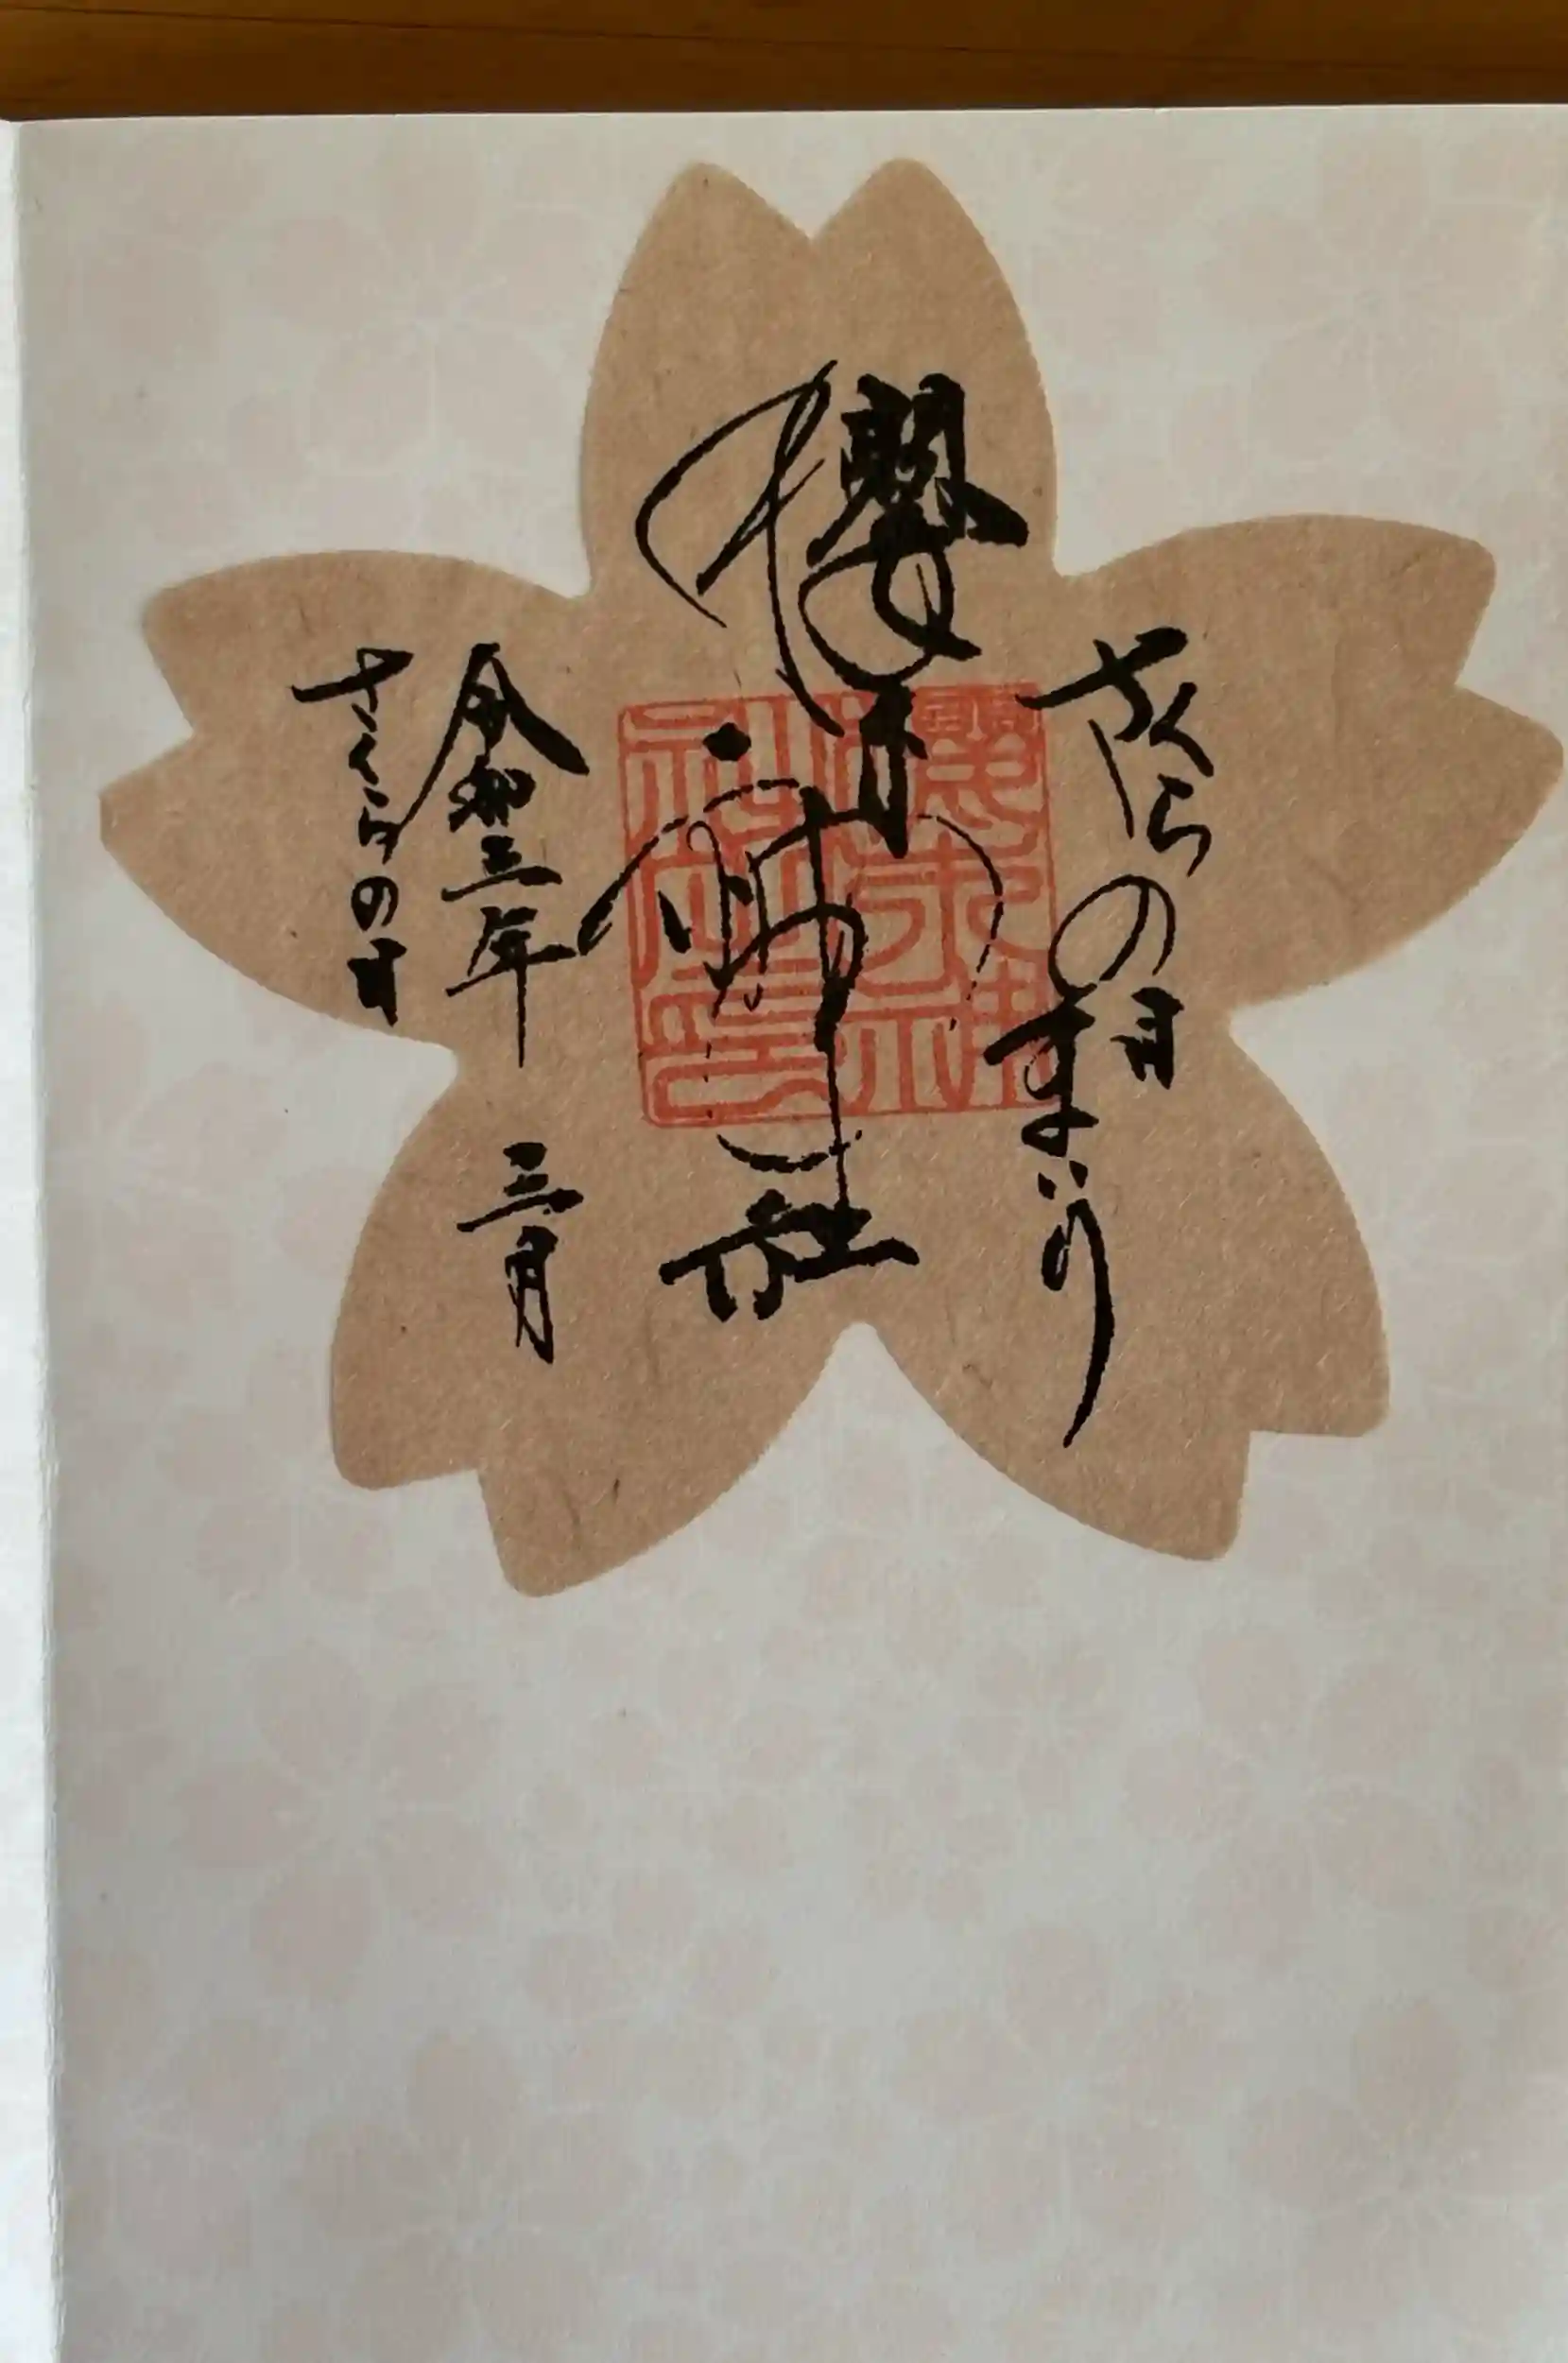 さくらの日
まいり
櫻木神社
櫻木神社印
令和三年 三月
さくらの日